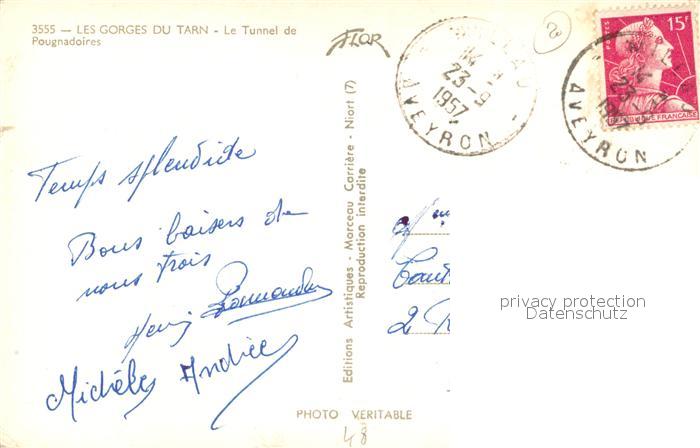 3555 — LES GORGES DU TARN - Le Tunnel de
Pougnadoires
FLOR
Temps splendide
Bons baisers de
nous trois
Henri
Michèle Andrée
Editions Artistiques - Marceau Carrière - Niort (7)
Reproduction interdite
PHOTO VERITABLE
48
MILLAU
14
23-9
1957
AVEYRON
POSTES
15F
REPUBLIQUE FRANCAISE
23-9
AVEYRON
2
privacy protection
Datenschutz